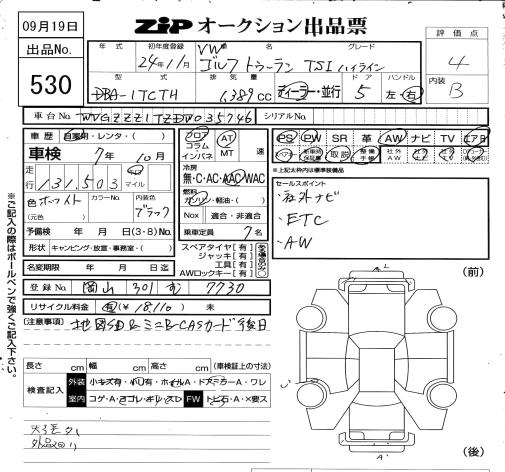 09月19日
ZIP オークション出品票
出品No.
530
評価点
4
内装
B
年式 初年度登録 車名 グレード
24年11月 VW ゴルフトゥーラン TSI ハイライン
型式 排気量 ドア ハンドル
DBA-1TCTH 1,389cc ディーラー・並行 5 左・右
車台No. WVGZZZ1TZDW035746 シリアルNo.
車歴 自家用・レンタ・( )
車検 7年10月
走行 131,503 km マイル
色 ホワイト カラーNo. 内装色 ブラック
(元色)
予備検 年 月 日(3・8)No.
形状 キャンピング・放置・事務室・( )
フロア コラム インパネ AT MT 速
冷房
無・C・AC・AAC・WAC
燃料
ガソリン・軽油・( )
Nox 適合・非適合
乗車定員 7名
スペアタイヤ[有]
ジャッキ[有]
工具[有]
AWロックキー[有]
PS PW SR 革 AW ナビ TV エアB
スペアキー 新車時保証書 取説 整備手帳 社外AW 社外ナビ 社外TV
※上記太枠内は標準装備品
セールスポイント
・社外ナビ
・ETC
・AW
名変期限 年 月 日迄
登録No. 岡山 301 む 7730
リサイクル料金 有(¥18,110) 未
(注意事項) 地図SD & ミニB-CASカード後日
長さ cm 幅 cm 高さ cm (車検証上の寸法)
検査記入 外装 小キズ有・小凹有・ホイルA・ドアミラーA・ワレ
室内 コゲ・A・ヨゴレ・キリ・スレ FW トビ石・A・×要ス
(前)
(後)
※ご記入の際はボールペンで強くご記入下さい。